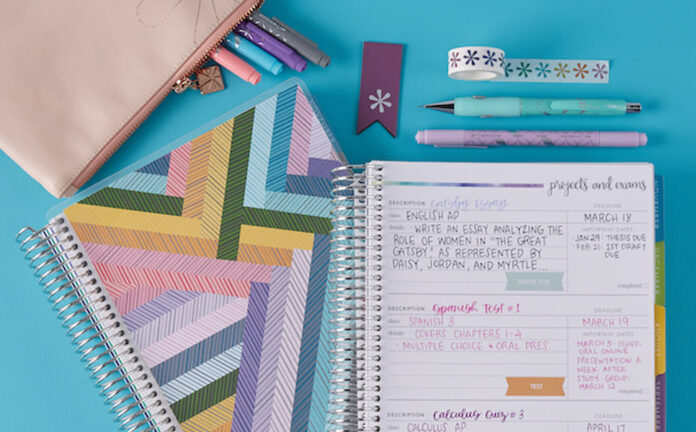 projects and exams
DESCRIPTION Gatsby Essay DEADLINE
class: ENGLISH AP MARCH 18
details: WRITE AN ESSAY ANALYZING THE IMPORTANT DATES
ROLE OF WOMEN IN "THE GREAT · JAN 29: THESIS DUE
GATSBY," AS REPRESENTED BY · FEB 21: 1ST DRAFT
DAISY, JORDAN, AND MYRTLE... DUE
PAPER DUE completed
DESCRIPTION Spanish Test #1 DEADLINE
class: SPANISH 3 MARCH 19
details: · COVERS CHAPTERS 1-4 IMPORTANT DATES
· MULTIPLE CHOICE + ORAL PRES. · MARCH 5: SCHED.
ORAL ONLINE
PRESENTATION A
WEEK AFTER
· STUDY GROUP:
TEST MARCH 12
completed
DESCRIPTION Calculus Quiz #3 DEADLINE
class: CALCULUS AP APRIL 17